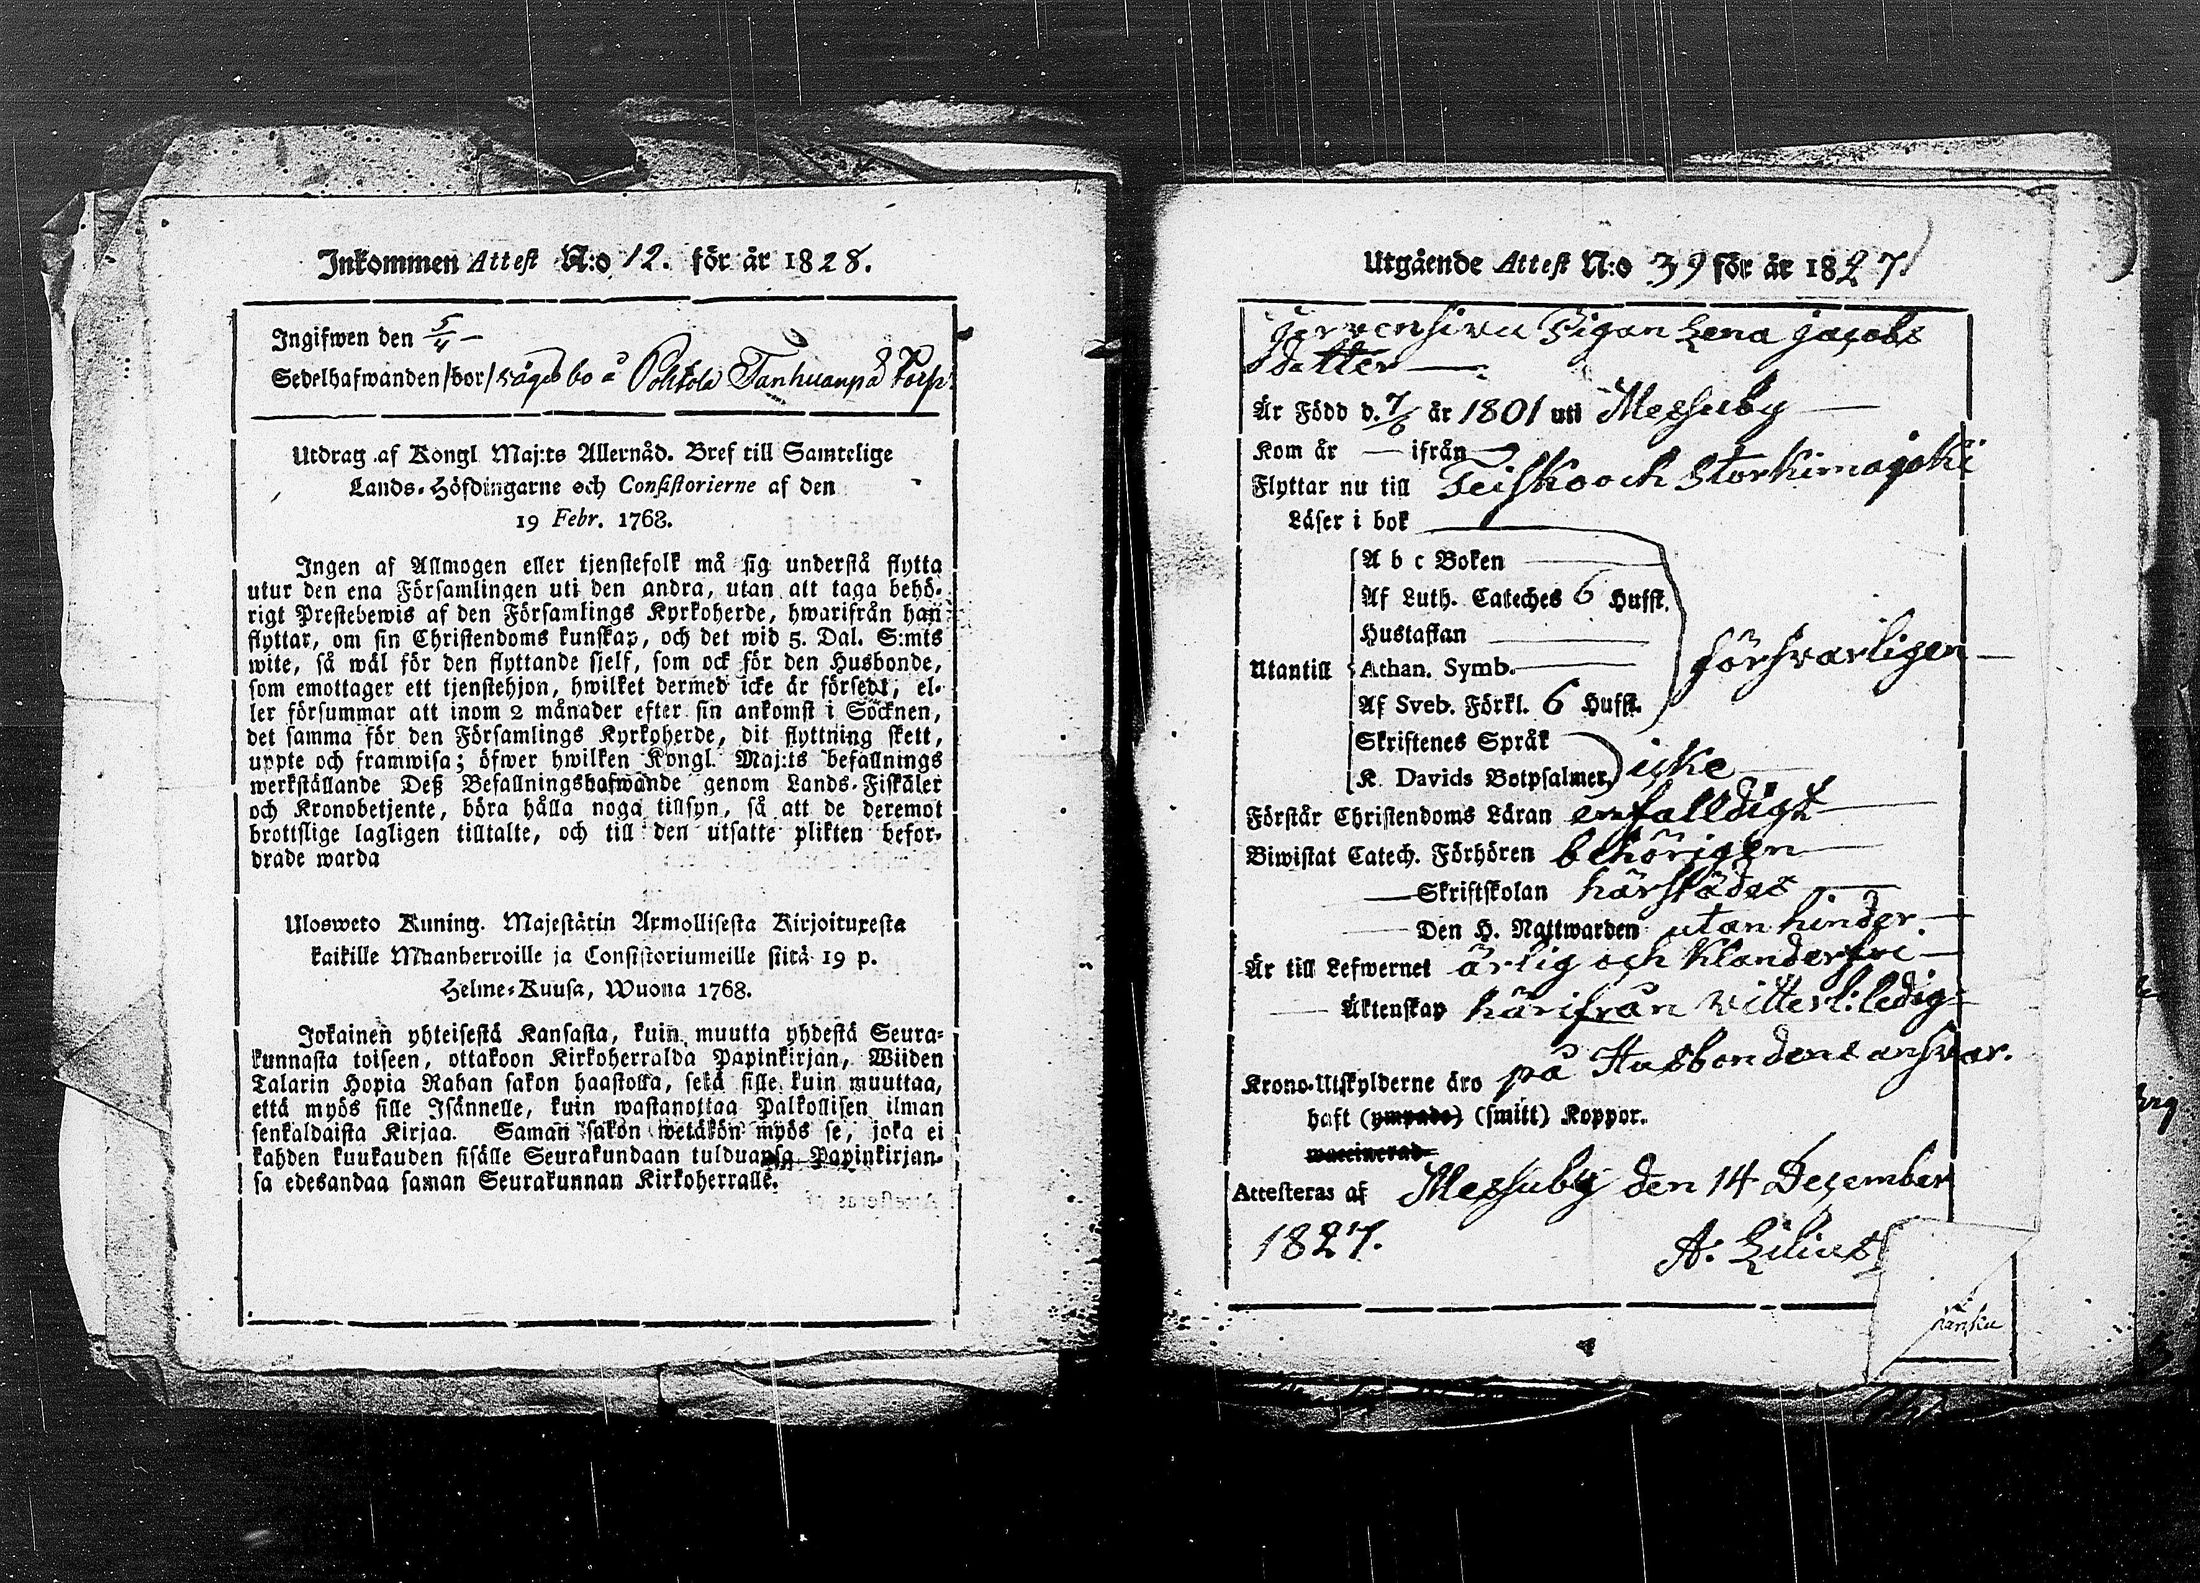 Inkommen Attest N:o 12. för år 1828.
Ingifwen den 5/4 —
Sedelhafwanden /bor/ säges bo å Pohtola Tanhuanpä Torp
Utdrag af Kongl Maj:ts Allernåd. Bref till Samtelige
Lands-Höfdingarne och Consistorierne af den
19 Febr. 1768.
Ingen af Allmogen eller tjenstefolk må sig understå flytta
utur den ena Församlingen uti den andra, utan att taga behö-
rigt Prestebewis af den Församlings Kyrkoherde, hwarifrån han
flyttar, om sin Christendoms kunskap, och det wid 5. Dal. S:mts
wite, så wäl för den flyttande sjelf, som ock för den Husbonde,
som emottager ett tjenstehjon, hwilket dermed icke är försedt, el-
ler försummar att inom 2 månader efter sin ankomst i Söcknen,
det samma för den Församlings Kyrkoherde, dit flyttning skett,
uppte och framwisa; öfwer hwilken Kongl. Maj:ts befallnings
werkställande Deß Befallningshafwande genom Lands-Fiskäler
och Kronobetjente, böra hålla noga tillsyn, så att de deremot
brottslige lagligen tilltalte, och till den utsatte plikten befor-
drade warda
Ulosweto Kuning. Majestätin Armollisesta Kirjoituxesta
kaikille Maanherroille ja Consistoriumeille siitä 19 p.
Helme-Kuusa, Wuonna 1768.
Jokainen yhteisestä Kansasta, kuin muutta yhdestä Seura-
kunnasta toiseen, ottakoon Kirkoherralda Papinkirjan, Wiiden
Talarin Hopia Rahan sakon haastolla, sekä sille kuin muuttaa,
että myös sille Isännelle, kuin wastanottaa Palkollisen ilman
senkaldaista Kirjaa. Saman sakon wetäkön myös se, joka ei
kahden kuukauden sisälle Seurakundaan tulduansa Papinkirjan-
sa edesandaa saman Seurakunnan Kirkoherralle.
Utgående Attest N:o 39 för år 1827
Jerrvensivu Pigan Lena Jacobs
dotter —
Är Född d. 7/6 år 1801 uti Messuby —
Kom år — ifrån —
Flyttar nu till Teisko och Storkimajoki
Läser i bok
A b c Boken
Af Luth. Cateches 6 Hufst.
Hustaflan
Utantill Athan. Symb. försvarligen —
Af Sveb. Förkl. 6 Hufst.
Skriftenes Språk
K. Davids Botpsalmer icke
Förstår Christendoms Läran enfalldigt
Biwistat Catech. Förhören behörigen
— Skriftskolan härstädes
— Den H. Nattwarden utan hinder
Är till Lefwernet ärlig och klanderfri
— Äktenskap härifrån vitterl: ledig
Krono-Utskylderne äro på Husbondens ansvar.
haft (ympade) (smitt) Koppor.
waccinerad
Attesteras af Messuby den 14 December
1827. A: Lilius